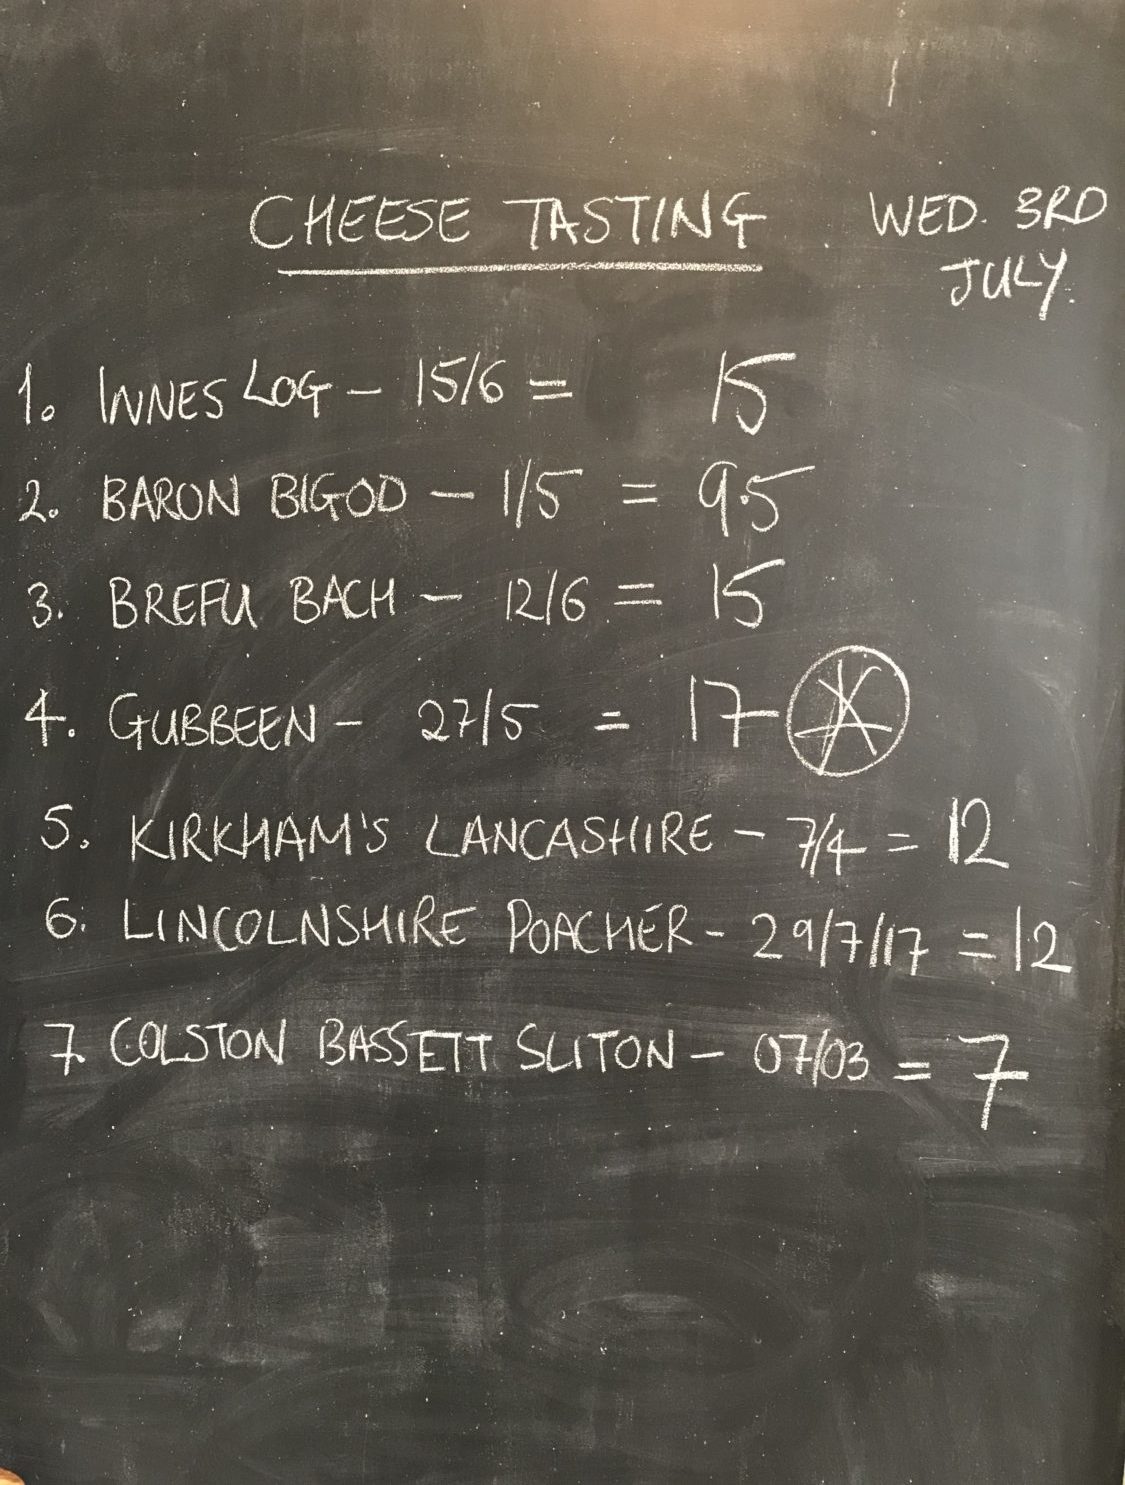 CHEESE TASTING WED. 3RD
JULY.
1. INNES LOG - 15/6 = 15
2. BARON BIGOD - 1/5 = 9.5
3. BREFU BACH - 12/6 = 15
4. GUBBEEN - 27/5 = 17
5. KIRKHAM'S LANCASHIRE - 7/4 = 12
6. LINCOLNSHIRE POACHER - 29/7/17 = 12
7. COLSTON BASSETT SLITON - 07/03 = 7